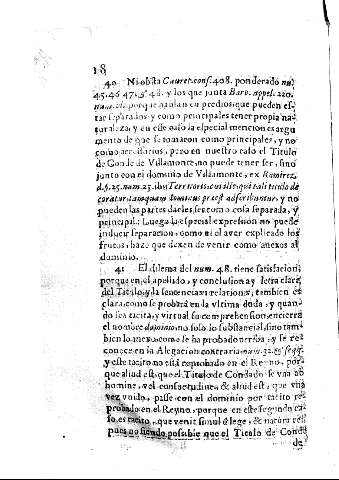 18
40. Ni obsta Cauret. cons. 408. ponderado nu.
45. 46 47. y 48. y los que junta Barv. appel. 220.
porque hablan en predios que pueden es-
tar separados, y como principales tener propia na-
turaleza, y en este caso la especial mencion es argu
mento de que se tomaron como principales, y no
como accessorios, pero en nuestro caso el Titulo
de Conde de Villamonte, no puede tener ser, sino
junto con el dominio de Villamonte, ex Ramirez,
d. §. 25. num. 25. ibi: Territorijs cui illis, qui tali titulo de
coratur, tamquam dominus præest adscribuntur, y no
pueden las partes darles ser como cosa separada, y
principal: Luego la especial expression no puede
inducir separacion, como ni el aver explicado los
frutos, haze que dexen de venir como anexos al
dominio.
41 El dilema del num. 48. tiene satisfacion
porque en el apellido, y conclusion ay letra clara
del Titulo, y la sentencia es relativa, tambien es
clara como se probará en la vltima duda, y quan-
do sea tacita, y virtual su comprehension encierra
el nombre dominio no solo lo substancial sino tam
bien lo anexo, como se ha probado arriba, y se re
conoce en la Alegacion contraria num. 32. et seqq.
y este tacito no está reprobado en el Reyno, por
que aliud est, que el Titulo de Condado se vna ab
homine, vel consuetudine, & aliud est, que vna
vez vnido, passe con el dominio por tacito re
probado en el Reyno, porque en este segundo ca
so, es tacito, que venit simul è lege, & natura rei
pues no siendo possible que el Titulo de Conde
de